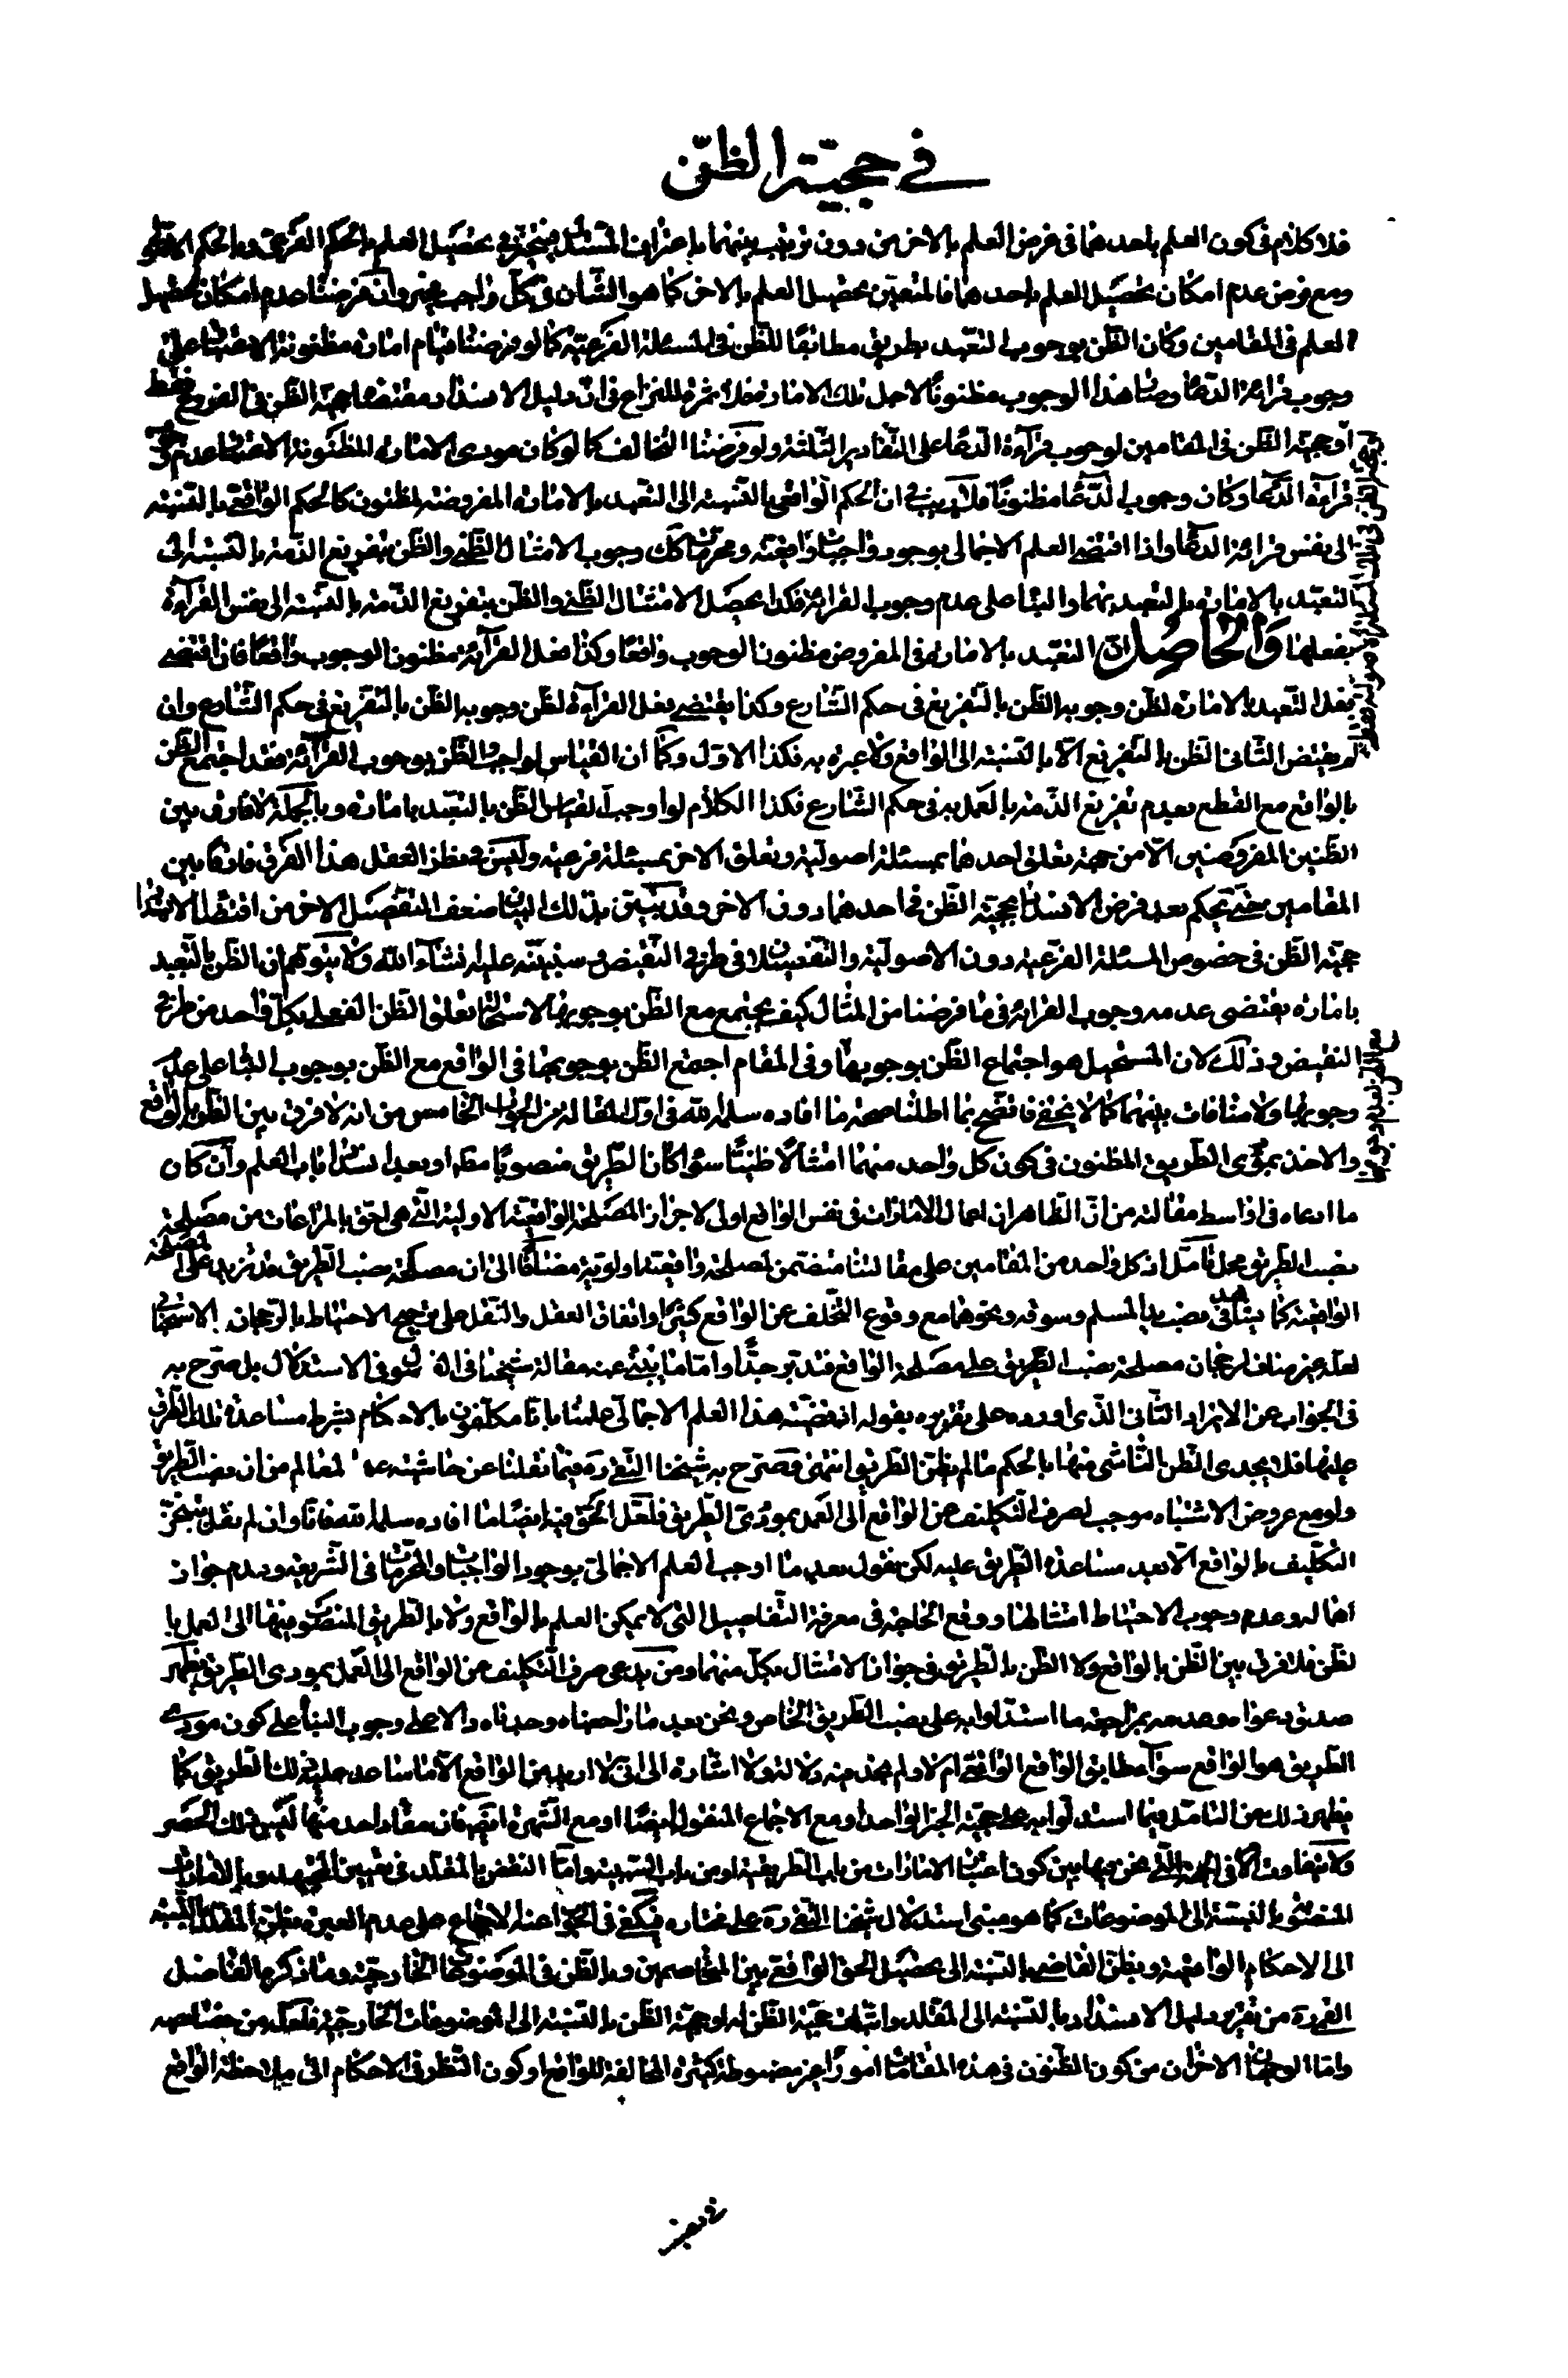 في حجيّة الظنّ
فلا كلام في كون العلم باحدهما في فرض العلم بالاخر من دون ترتيب بينهما تحصيل العلم بالحكم الفرعي وبالحكم
ومع فرض عدم امكان تحصيل العلم باحدهما فالمتعيّن تحصيل العلم بالاخر كما هو الشأن في كلّ واجب وان فرضنا عدم امكان تحصيل
العلم في المقامين وكان الظّن بوجوب التعبد بطريق مطابقا للظّن في المسئلة الفرعيّة كما لو فرضنا قيام امارة مظنونة الاعتبار على
وجوب قراءة الدعاء هذا الوجوب مظنونا لاجل تلك الامارة فلا ثمرة للنزاع في ان دليل الانسداد مقتضاه حجية الظّن في الفروع فقط
او حجية الظّن في المقامين لوجوب قراءة الدّعاء على التّقادير الثلثة ولو فرضنا التخالف كما لو كان مودى الامارة المظنونة الاعتبار عدم
قراءة الدّعاء وكان وجوب الدّعاء مظنونا فلا ريب في ان الحكم الواقعي بالنسبة الى التعبد بالامارة المفروضة مظنون كالحكم الواقعي بالنسبة
الى نفس قراءة الدعاء واذا اقتضى العلم الاجمالي بوجود واجبات واقعية ومحرمات كك وجوب الامتثال الظّنى والظّن بتفريغ الذّمة بالنسبة الى
التعبد بالامارة بالتعبد بهما والبناء على عدم وجوب القراءة فكذا يحصل الامتثال الظنى والظّن بتفريغ الذّمة بالنسبة الى نفس القراءة
بفعلها والحاصل ان التعبد بالامارة في المفروض مظنون الوجوب واقعا وكذا فعل القراءة مظنون الوجوب واقعا فان اقتضى
فعل التعبد بالامارة لظن وجوبه الظّن بالتّفريغ في حكم الشّارع وكذا يقتضى فعل القراءة لظن وجوبه الظّن بالتفريغ في حكم الشّارع وان
لم يقتض الثّانى الظّن بالتفريغ الّا بالنسبة الى الواقع ولا عبرة به فكذا الاول وكما ان القياس لو اوجب الظّن بوجوب القراءة فقد اجتمع الظّن
بالواقع مع القطع بعدم تفريغ الذّمة بالعمل به في حكم الشّارع فكذا الكلام لو اوجب القياس الظّن بالتعبد بامارة وبالجملة لا فارق بين
الظّنين المفروضين الّا من جهة تعلق احدهما بمسئلة اصولية وتعلق الاخر بمسئلة فرعية وليس في نظر العقل هذا الفرق فارقا بين
المقامين حتى يحكم بعد فرض الانسداد بحجية الظّن في احدهما دون الاخر وقد تبيّن بذلك البيان ضعف التفصيل الاخر من اقتضاء الانسداد
حجية الظّن في خصوص المسئلة الفرعية دون الاصولية والتفصيلان في طرفي النّقيض وسننبّه عليه انشاء الله ولا يتوهم ان الظّن بالتعبد
بامارة يقتضى عدم وجوب القراءة في ما فرضنا من المثال كيف يجتمع مع الظّن بوجوبها لاستحالة تعلق الظّن الفعلى بكل واحد من طرفي
النقيض وذلك لان المستحيل هو اجتماع الظّن بوجوبها وفي المقام اجتمع الظّن بوجوبها في الواقع مع الظّن بوجوب البناء على عدم
وجوبها ولا منافات بينهما كما لا يخفى فاتضح بما اطلنا صحة ما افاده سلمه الله في اول المقالة من الجواب الخامس من انه لا فرق بين الظن بالواقع
والاخذ بمؤدى الطريق المظنون في كون كل واحد منهما امتثالا ظنيّا سواء كان الطّريق منصوبا مط او بعد انسداد باب العلم وان كان
ما ادعاه في اواسط مقالته من انّ الظّاهر ان اعمال الامارات في نفس الواقع اولى لاحراز المصلحة الواقعية الاولية الّتى هي احق بالمراعات من مصلحة
نصب الطّريق محل تامّل اذ كل واحد من المقامين على مقالتنا متضمن لمصلحة واقعية اولوية مضافا الى ان مصلحة نصب الطّريق قد تزيد على المصلحة
الواقعية كما بيّنا في نصب يد المسلم وسوقه ونحوهما مع وقوع التّخلف عن الواقع كثيرا واتفاق العقل والنّقل على ترجيح الاحتياط
لعلّه غير مناف لرجحان مصلحة نصب الطّريق على مصلحة الواقع فتدبّر جدّا وامّا ما ينبئ عنه مقالة شيخنا في الاستدلال بل صرّح به
في الجواب عن الايراد الثّانى الذّى اورده على تقريره بقوله ان قضيّة هذا العلم الاجمالي علمنا بانّا مكلّفون بالاحكام بشرط مساعدة تلك الطّرق
عليها فلا يجدى الظّن النّاشى منها بالحكم ما لم يظنّ الطّريق انتهى وصرّح به شيخنا التّقى ره فيما نقلنا عن حاشيته على المعالم من ان نصب الطّريق
ولو مع عروض الاشتباه موجب لصرف التّكليف عن الواقع الى العمل بمؤدّى الطّريق فلعل الحقّ فيه ايضا ما افاده سلمه الله فانّا وان لم نقل بتنجّز
التّكليف بالواقع الّا بعد مساعدة الطّريق عليه لكن نقول بعد ما اوجب العلم الاجمالى بوجود الواجبات والمحرّمات في الشّريعة وعدم جواز
اهماله وعدم وجوب الاحتياط امتثالها ووقع الحاجة في معرفة التّفاصيل التى لا يمكن العلم بالواقع ولا بالطّريق المنصوب فيها الى العمل با
لظّن فلا فرق بين الظّن بالواقع ولا الظّن بالطّريق في جواز الامتثال بكلّ منهما ومن يدعى صرف التكليف عن الواقع الى العمل بمودى الطّريق يظهر
صدق دعواه وعدمه بمراجعة ما استدلوا به على نصب الطّريق الخاص ونحن بعد ما راجعناه وجدناه دالا على وجوب البناء على كون مودى
الطّريق هو الواقع سواء طابق الواقع الواقعى ام لا ولم نجد فيه دلالة ولا اشارة الى انى لا اريد من الواقع الّا ما ساعد عليه ذلك الطّريق كما
يظهر ذلك من التّامّل فيما استدلّوا به على حجيّة الخبر الواحد ومع الاجماع المنقول ايضا او مع الشّهرة ايضا فان مفاد واحد منها ليس ذلك الحصر
ولا يتفاوت الامر في الجهة الّتى نحن فيها بين كون اعتبار الامارات من باب الطّريقية او من باب السّببية وامّا النقض بالمقلد في تعيين المجتهد وبالامارات
المنصوبة بالنسبة الى الموضوعات كما هو مبنى استدلال شيخنا التّقى ره على مختاره فيكفى في الجواب عنه الاجماع على عدم العبرة بظن المقلّد بالنّسبة
الى الاحكام الواقعية وبظنّ القاضى بالنسبة الى تحصيل الحق الواقعي بين المتخاصمين وبالظّن في الموضوعات الخارجيّة وما ذكره الفاضل
القمى ره من تقرير دليل الانسداد بالنّسبة الى المقلد واثبات حجيّة الظّن له او حجية الظّن بالنّسبة الى الموضوعات الخارجيّة فلعلّه من خصائصه
وامّا الوجهان الاخران من كون الظّنون في هذه المقامات امورا غير مضبوطة كثيرة المخالفة للواقع او كون النّظر في الاحكام الى ملاحظة الواقع